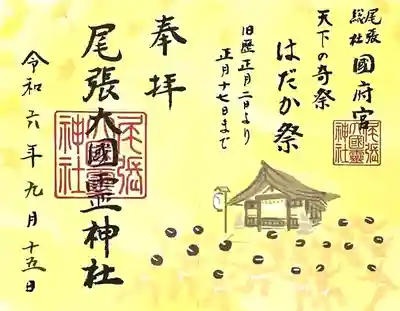 尾張
総社 國府宮
天下の奇祭
はだか祭
旧歴正月二日より
正月十七日まで
尾張
大國霊
神社
奉拝
尾張大國霊神社
尾張
大國霊
神社
令和六年九月十五日